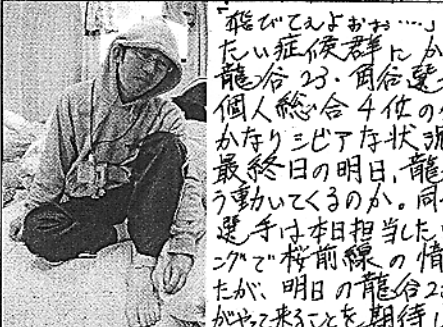 飛びてぇよおぉ……」
たい症候群にか
龍谷23・岡谷選
個人総合4位の
かなりシビアな状況
最終日の明日、龍
う動いてくるのか。同
選手は本日担当した
ングで桜前線の情
たが、明日の龍谷2
がやって来ることを期待し